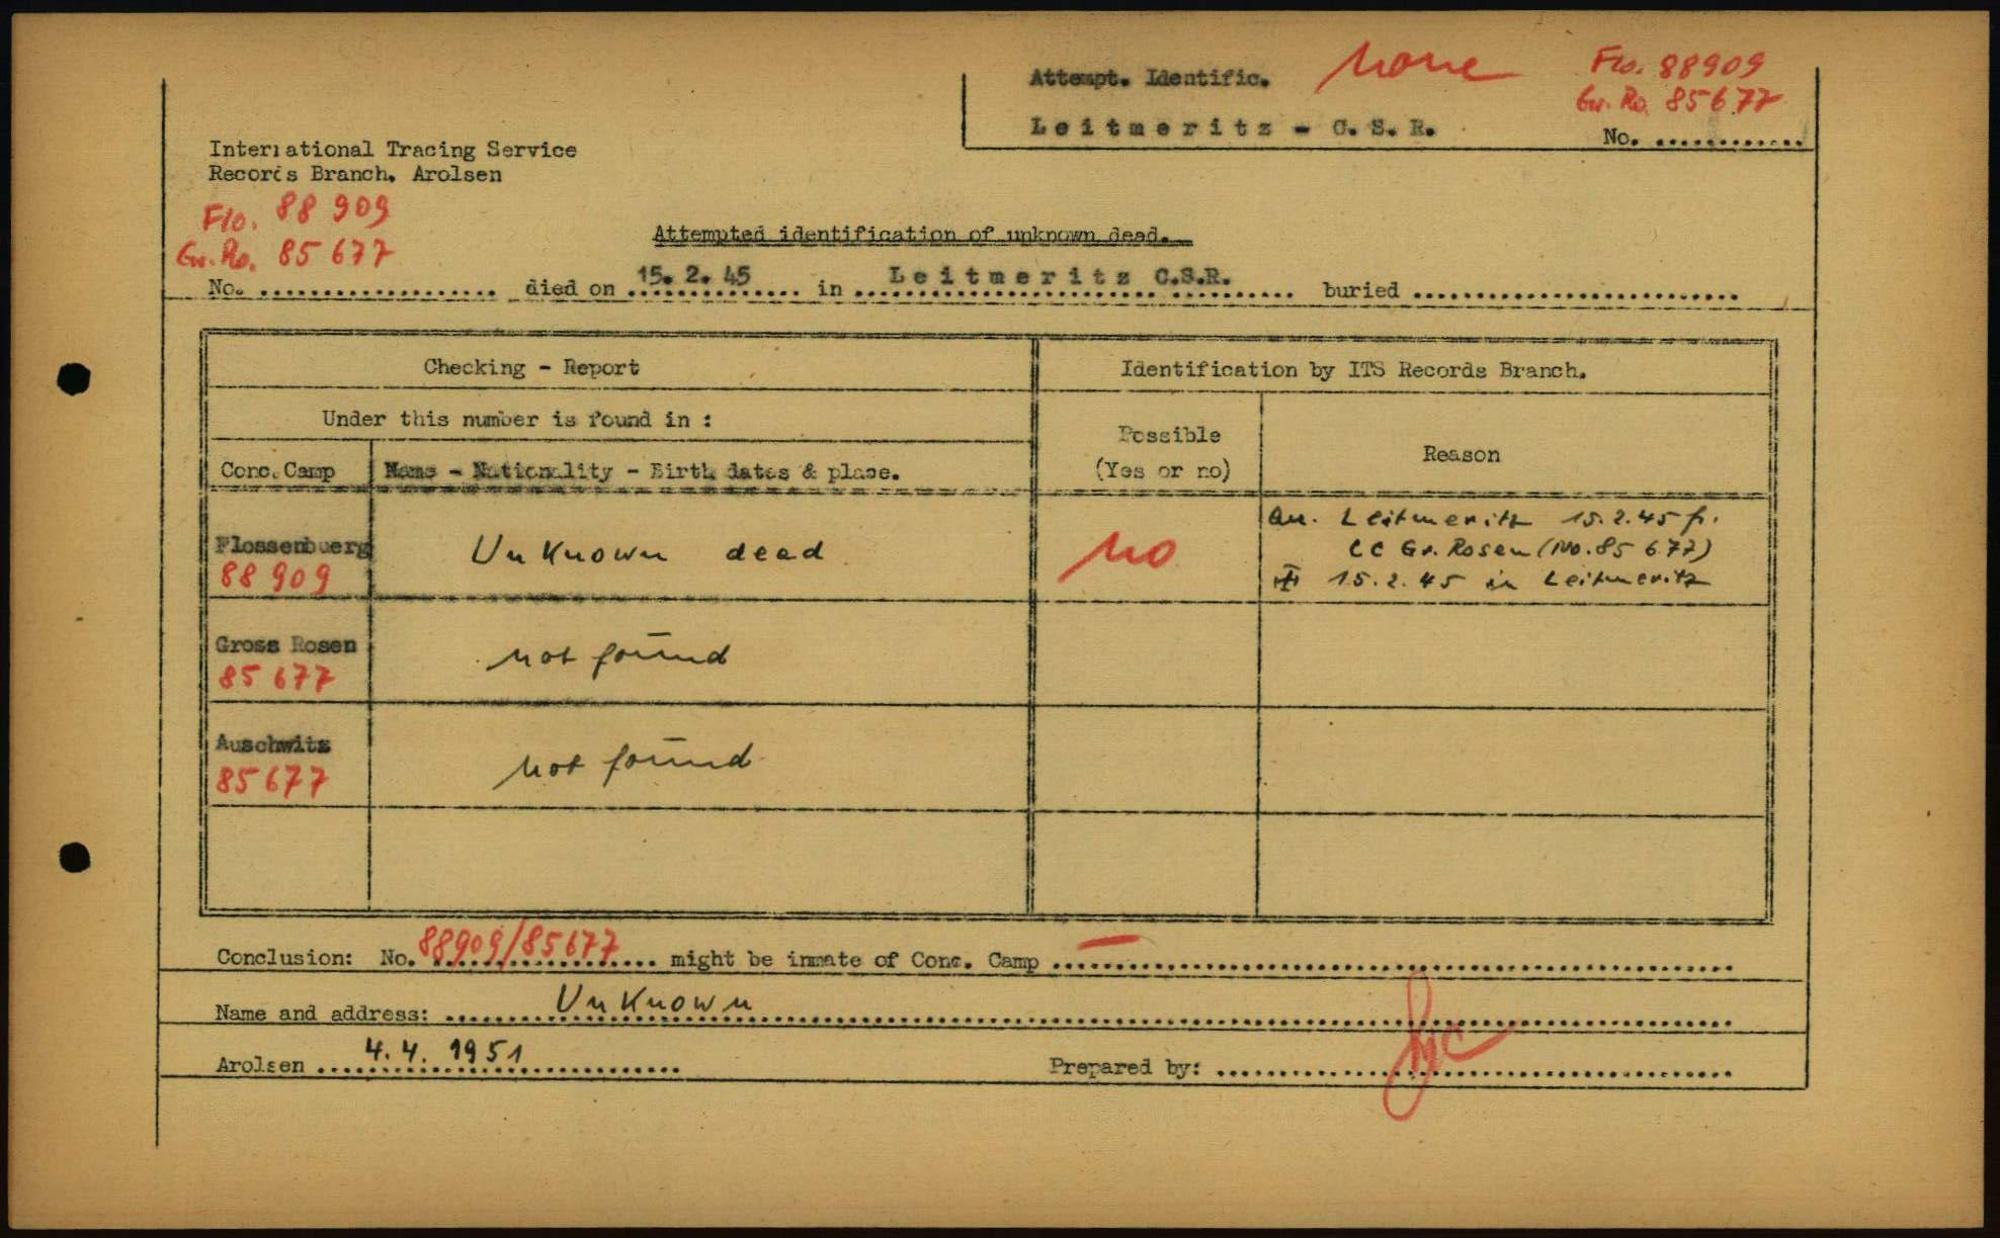 Attempt. Identific. none Flo. 88909
Gr. Ro. 85677
Leitmeritz - C.S.R. No. ............
International Tracing Service
Records Branch, Arolsen
Flo. 88 909
Gr. Ro. 85 677
Attempted identification of unknown dead.
No. .................. died on 15. 2. 45 in Leitmeritz C.S.R. buried ..........................
Checking - Report
Identification by ITS Records Branch.
Under this number is found in :
Possible
(Yes or no)
Reason
Conc. Camp
Name - Nationality - Birth dates & place.
Flossenbuerg
88 909
Unknown dead
no
Leitmeritz 15.2.45 fr.
CC Gr. Rosen (No. 85 677)
15.2.45 in Leitmeritz
Gross Rosen
85 677
not found
Auschwitz
85677
not found
Conclusion: No. 88909/85677 might be inmate of Conc. Camp —
Name and address: Unknown
Arolsen 4. 4. 1951 Prepared by: